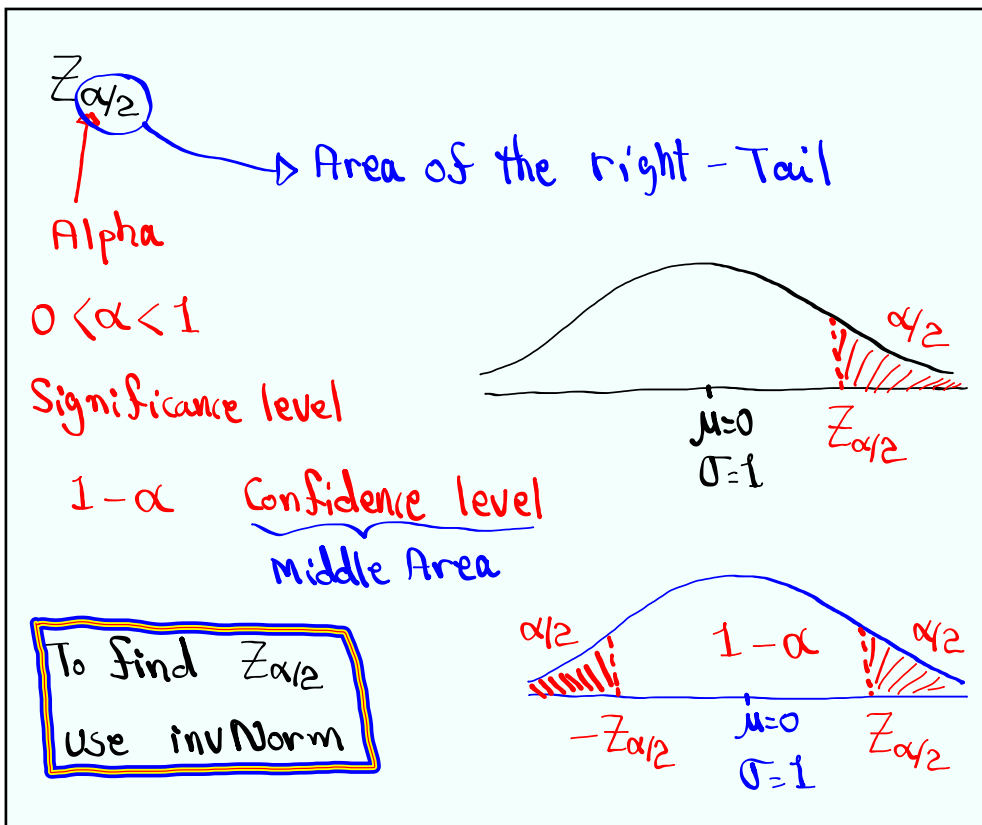 Z α/2
Area of the right-Tail
Alpha
0 < α < 1
Significance level
1-α Confidence level
Middle Area
α/2
Z α/2
μ=0
σ=1
To find Z α/2
use invNorm
α/2
1-α
α/2
-Z α/2
μ=0
Z α/2
σ=1